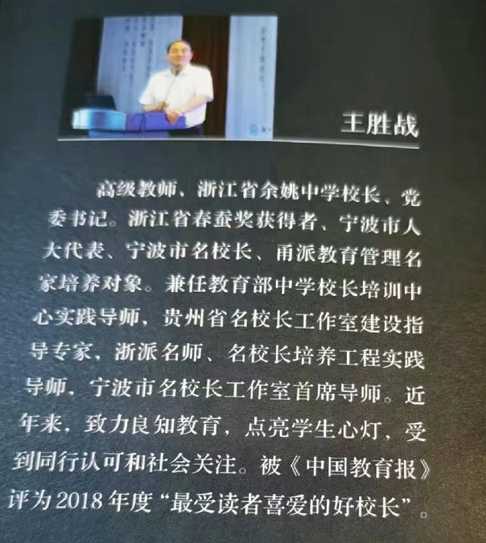 王胜战
高级教师、浙江省余姚中学校长、党
委书记。浙江省春蚕奖获得者、宁波市人
大代表、宁波市名校长、甬派教育管理名
家培养对象。兼任教育部中学校长培训中
心实践导师，贵州省名校长工作室建设指
导专家，浙派名师、名校长培养工程实践
导师，宁波市名校长工作室首席导师。近
年来，致力良知教育，点亮学生心灯，受
到同行认可和社会关注。被《中国教育报》
评为2018年度“最受读者喜爱的好校长”。